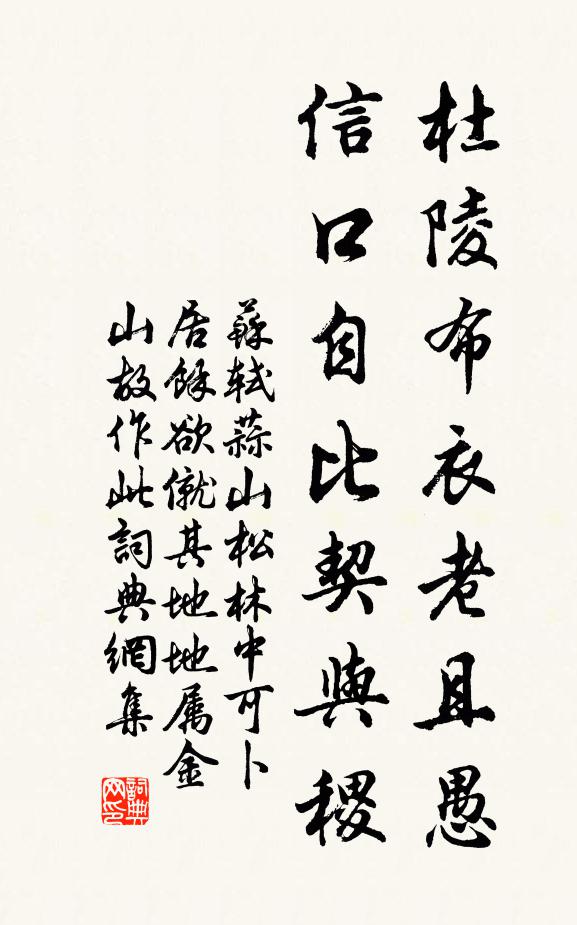 杜陵布衣老且愚
信口自比契與稷
蘇軾蒜山松林中可卜
居餘欲僦其地地属金
山故作此詞典網集
詞典
网印